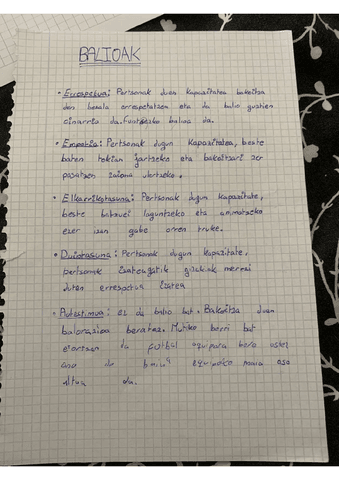 BALIOAK
• Errespetua: Pertsonak duen kapazitatea bakoitza
den bezala errespetatzea eta da balio guztien
oinarria da. Funtsezko balioa da.
• Empatia: Pertsonak dugun kapazitatea, beste
baten tokian jartzeko eta bakoitzari zer
pasatzen zaiona ulertzeko.
• Elkarrikotasuna: Pertsonak dugun kapazitate,
beste batzuei laguntzeko eta animatzeko
ezer izan gabe orren truke.
• Duintasuna: Pertsonak dugun kapazitate,
pertsonak izateagatik gizakiak merezi
duten errespetua izatea
• Autoestimua: ez da balio bat. Bakoitza duen
balorazioa berataz. Mutiko berri bat
etortzen da futbol equipora bero oster
da oso
altua da.